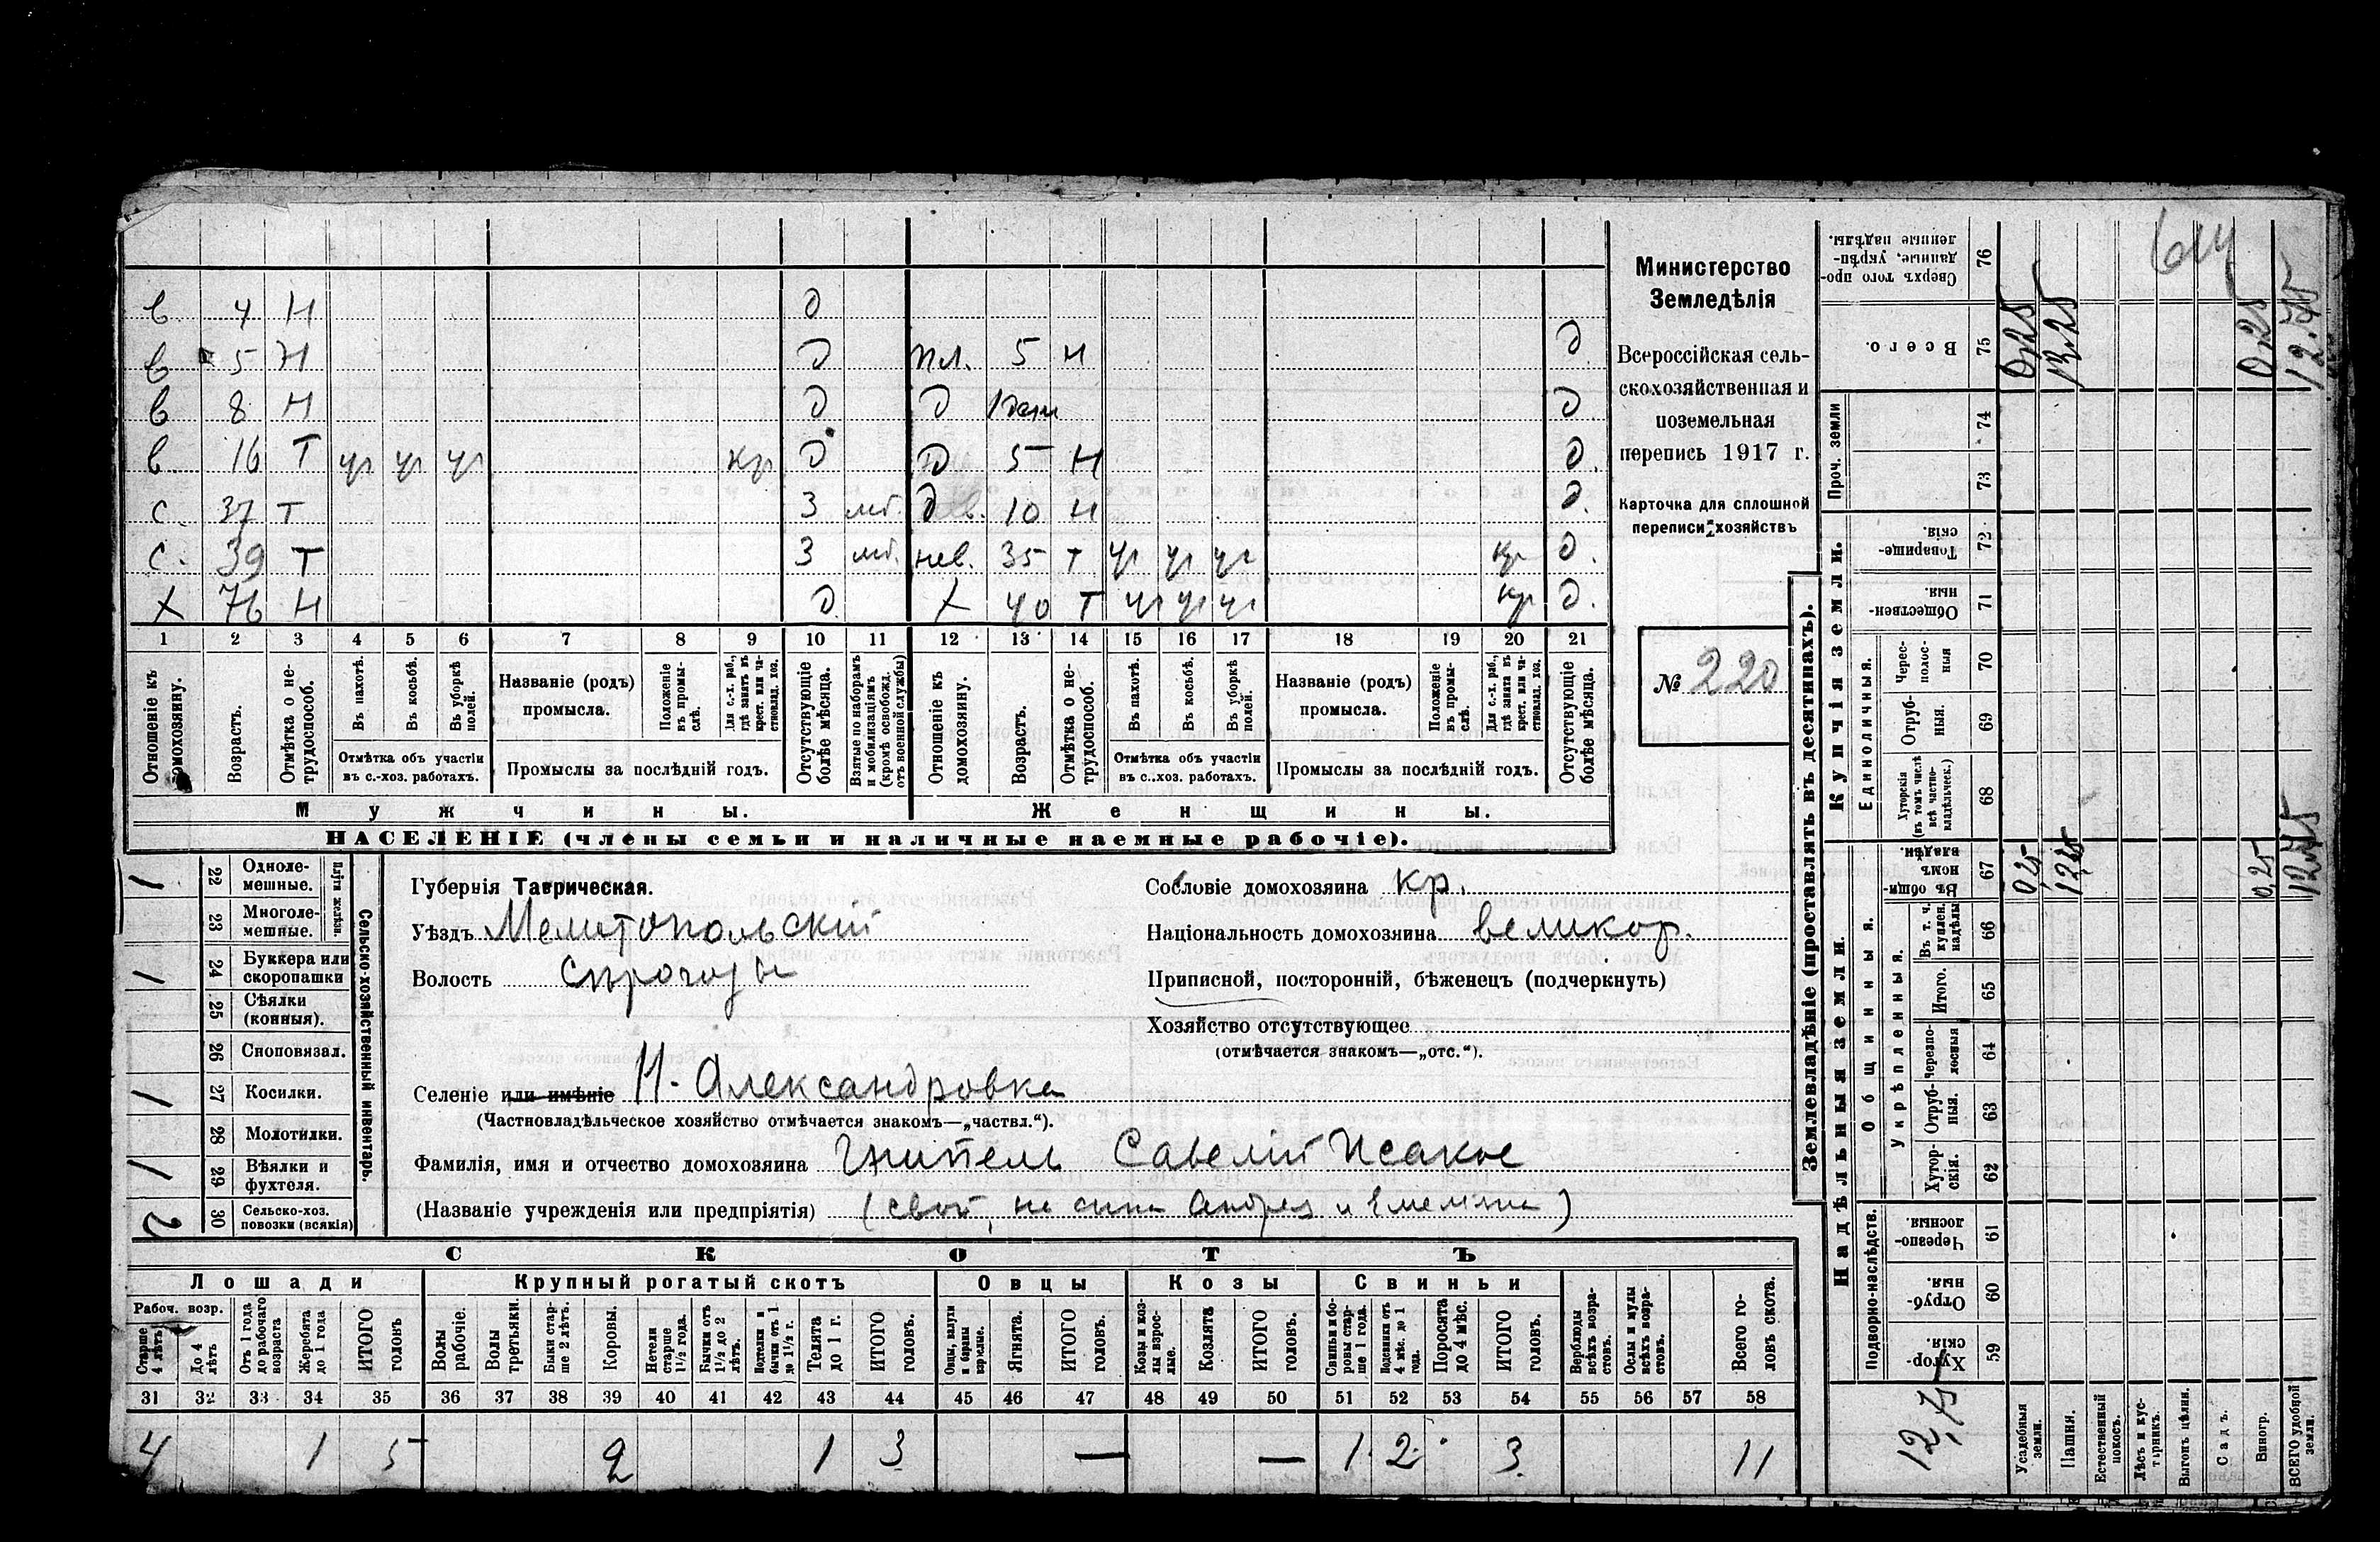 в 4 Н д
в 5 Н д пл. 5 Н д
в 8 Н д д д
в 16 Т уч уч уч кр д д 5 Н д.
с. 37 Т 3 мб. д 10 Н д.
с. 39 Т 3 мб. нев. 35 Т уч уч уч кр д.
х 76 Н д. х 40 Т уч уч уч кр д.
1 2 3 4 5 6 7 8 9 10 11 12 13 14 15 16 17 18 19 20 21
Отношеніе къ домохозяину.
Возрастъ.
Отмѣтка о нетрудоспособ.
Въ пахотѣ.
Въ косьбѣ.
Въ уборкѣ полей.
Отмѣтка объ участіи въ с.-хоз. работахъ.
Названіе (родъ) промысла.
Положеніе въ промыслѣ.
Для с.-х. раб., гдѣ занятъ въ крест. или частновлад. хоз.
Промыслы за послѣдній годъ.
Отсутствующіе болѣе мѣсяца.
Взятые по наборамъ и мобилизаціямъ (кромѣ освобожд. отъ военной службы)
Отношеніе къ домохозяину.
Возрастъ.
Отмѣтка о нетрудоспособ.
Въ пахотѣ.
Въ косьбѣ.
Въ уборкѣ полей.
Отмѣтка объ участіи въ с..хоз. работахъ.
Названіе (родъ) промысла.
Положеніе въ промыслѣ.
Для с.-х. раб., гдѣ занята въ крест. или частновлад. хоз.
Промыслы за послѣдній годъ.
Отсутствующіе болѣе мѣсяца.
Мужчины. Женщины.
НАСЕЛЕНІЕ (члены семьи и наличные наемные рабочіе).
Министерство
Земледѣлія
Всероссійская сель-
скохозяйственная и
поземельная
перепись 1917 г.
Карточка для сплошной
переписи хозяйствъ
№ 220
1 22 Одноле-мешные.
23 Многоле-мешные.
Плуги желѣзн.
1 24 Буккера или скоропашки
25 Сѣялки (конныя).
26 Сноповязал.
1 27 Косилки.
28 Молотилки.
1 29 Вѣялки и фухтеля.
2 30 Сельско-хоз. повозки (всякія)
Сельско-хозяйственный инвентарь.
Губернія Таврическая.
Уѣздъ Мелитопольский
Волость Сирогозы
Селеніе или имѣніе Н. Александровка
(Частновладѣльческое хозяйство отмѣчается знакомъ—„частвл.“).
Фамилія, имя и отчество домохозяина Савелій Исаков
(Названіе учрежденія или предпріятія) (свой, на сына Андрея и Емеліяна)
Сословіе домохозяина кр.
Національность домохозяина великор.
Приписной, посторонній, бѣженецъ (подчеркнуть)
Хозяйство отсутствующее
(отмѣчается знакомъ—„отс.“).
СКОТЪ
Лошади Крупный рогатый скотъ Овцы Козы Свиньи
Рабоч. возр.
Старше 4 лѣтъ
До 4 лѣтъ
Отъ 1 года до рабочаго возраста
Жеребята до 1 года
ИТОГО головъ
Волы рабочіе.
Волы третьяки.
Быки старше 2 лѣтъ.
Коровы.
Нетели старше 1½ года.
Бычки отъ 1½ до 2 лѣтъ.
Подтелки и бычки отъ 1 до 1½ г.
Телята до 1 г.
ИТОГО головъ.
Овцы, валухи и бараны взрослые.
Ягнята.
ИТОГО головъ.
Козы и козлы взрослые.
Козлята
ИТОГО головъ.
Свиньи и боровы старше 1 года.
Подсвинки отъ 4 мѣс. до 1 года.
Поросята до 4 мѣс.
ИТОГО головъ.
Верблюды всѣхъ возрастовъ.
Ослы и мулы всѣхъ возрастовъ.
Всего головъ скота.
31 32 33 34 35 36 37 38 39 40 41 42 43 44 45 46 47 48 49 50 51 52 53 54 55 56 57 58
4 1 5 2 1 3 — — 1 2 3 11
Землевладѣніе (проставлять въ десятинахъ).
Надѣльныя земли. Купчія земли. Проч. земли
Подворно-наслѣдств. Общинныя. Укрѣпленныя. Единоличныя.
Хуторскія 59
Отрубныя. 60
Черезполосныя. 61
Хуторскія. 62
Отрубныя. 63
Черезполосныя 64
Итого. 65
Въ т. ч. куплен. надѣлы 66
Въ общинномъ владѣн. 67
Хуторскія (въ томъ числѣ всѣ частновладѣльческ.) 68
Отрубныя. 69
Чересполосныя 70
Общественныя. 71
Товарищескія. 72
73
74
Всего. 75
Сверхъ того проданные, укрѣпленные надѣлы. 76
Усадебныя земли. 0,25 0,25
Пашня. 12,25
Естественный покосъ.
Лѣсъ и кустарникъ.
Выгонъ цѣлин.
Садъ.
Виногр. 0,25 0,25
ВСЕГО удобной земли. 12.75 12.75
12,75